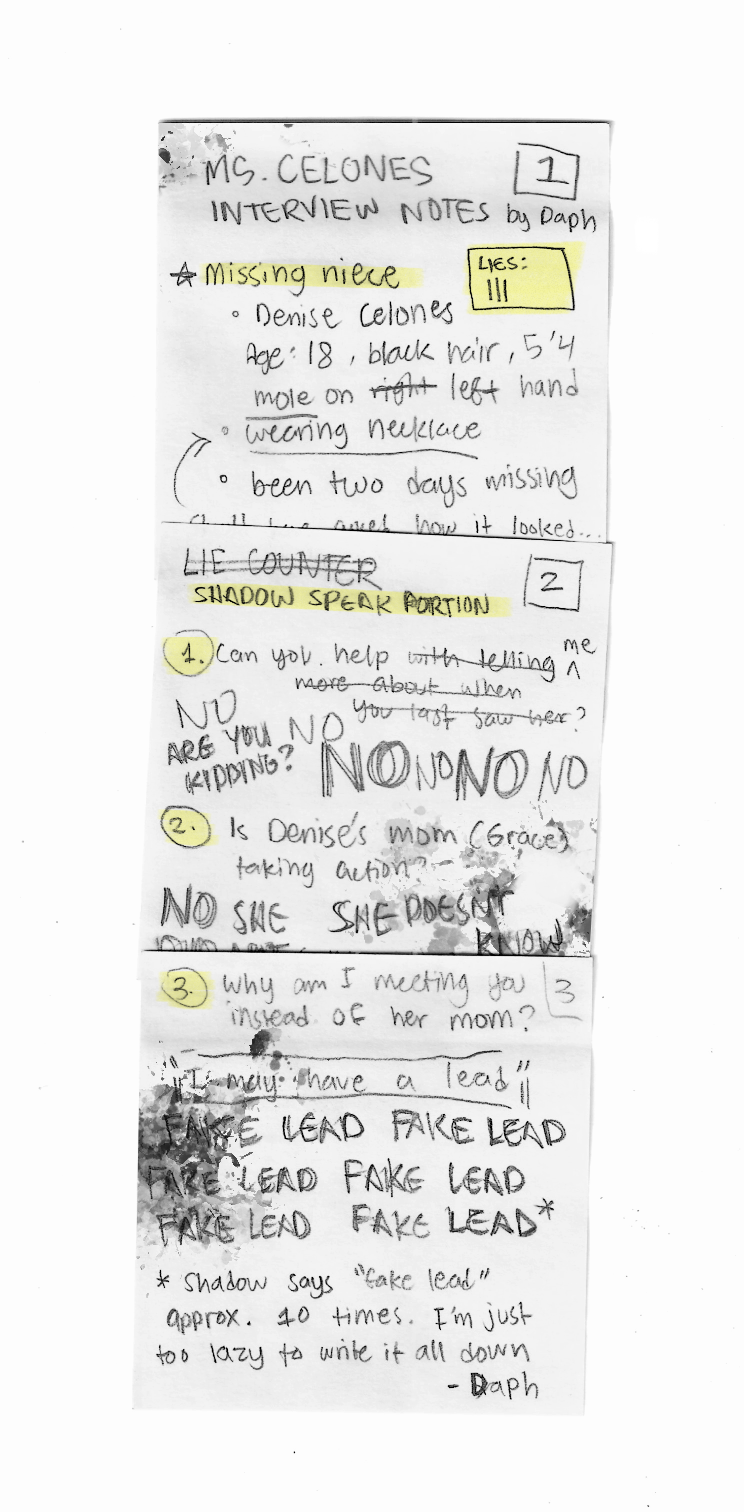 MS. CELONES
1
INTERVIEW NOTES by Daph
☆ Missing niece
LIES:
III
• Denise Celones
Age: 18, black hair, 5'4
mole on right left hand
• wearing necklace
• been two days missing
asked how it looked...
LIE COUNTER
2
SHADOW SPEAK PORTION
1. Can you help with telling me
more about when
you last saw her?
NO
ARE YOU NO
KIDDING? NO NO NO NO
2. Is Denise's mom (Grace)
taking action?
NO SHE SHE DOESN'T
KNOW
3. Why am I meeting you
3
instead of her mom?
"I may have a lead"
FAKE LEAD FAKE LEAD
FAKE LEAD FAKE LEAD
FAKE LEAD FAKE LEAD*
* Shadow says "fake lead"
approx. 10 times. I'm just
too lazy to write it all down
- Daph